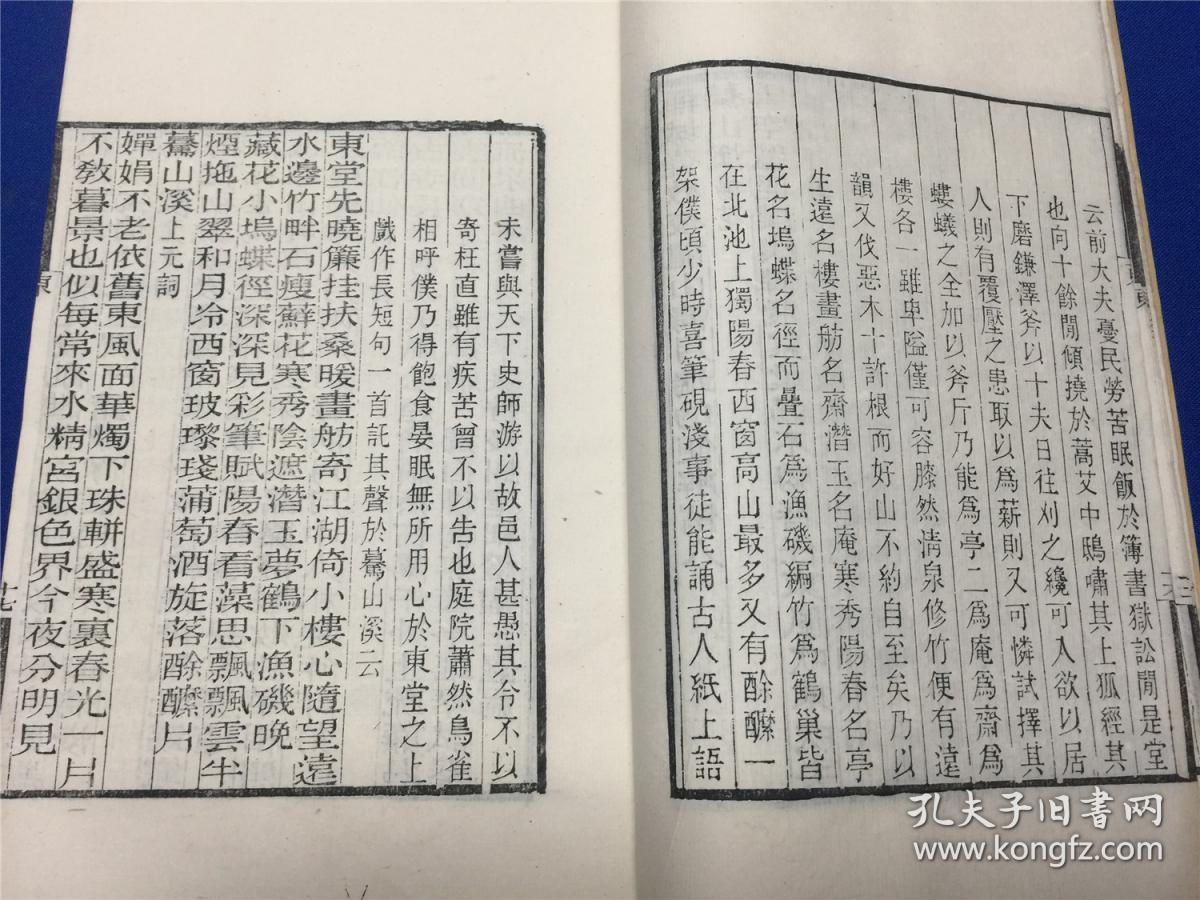 云前大夫憂民勞苦眠飯於簿書獄訟閒是堂
也向十餘閒傾撓於蒿艾中鴟嘯其上狐經其
下磨鎌澤斧以十夫日往刈之纔可入欲以居
人則有覆壓之患取以爲薪則又可憐試擇其
螻蟻之全加以斧斤乃能爲亭二爲庵爲齋爲
樓各一雖卑隘僅可容膝然淸泉修竹便有遠
韻又伐惡木十許根而好山不約自至矣乃以
生遠名樓畫舫名齋潛玉名庵寒秀陽春名亭
花名塢蝶名徑而疊石爲漁磯編竹爲鶴巢皆
在北池上獨陽春西窗高山最多又有酴醾一
架僕頃少時喜筆硯淺事徒能誦古人紙上語
未嘗與天下史師游以故邑人甚愚其令不以
寄枉直雖有疾苦曾不以告也庭院蕭然鳥雀
相呼僕乃得飽食晏眠無所用心於東堂之上
戲作長短句一首託其聲於驀山溪云
東堂先曉簾挂扶桑暖畫舫寄江湖倚小樓心隨望遠
水邊竹畔石瘦蘚花寒秀陰遮潛玉夢鶴下漁磯晚
藏花小塢蝶徑深深見彩筆賦陽春看藻思飄飄雲半
煙拖山翠和月冷西窗玻瓈琖蒲萄酒旋落酴醾片
驀山溪上元詞
嬋娟不老依舊東風面華燭下珠軿盛寒裏春光一片
不敎暮景也似每常來水精宮銀色界今夜分明見
東
孔夫子旧书网
www.kongfz.com